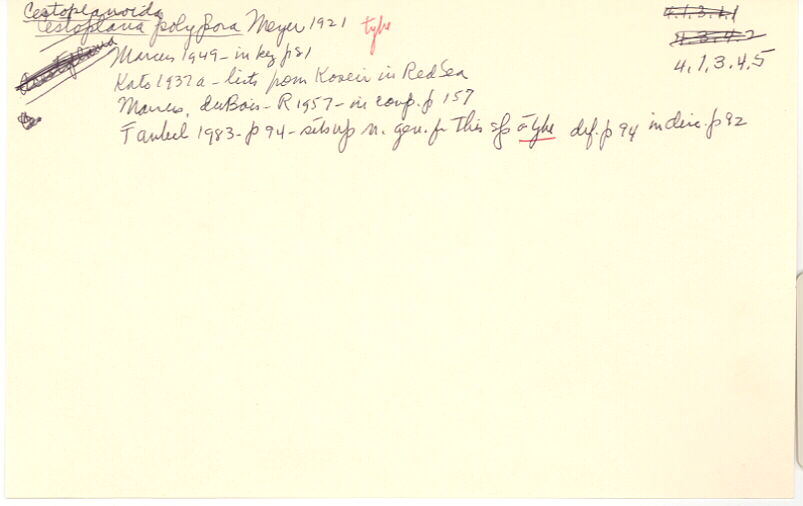 Cestoplanoida 4.1.3.4.1
Cestoplana polypora Meyer 1921 type 4.3.4.2
Cestoplana Marcus 1949 - in key p81 4.1.3.4.5
Kato 1937a - lists from Koseir in Red Sea
Marcus, du Bois-R 1957 - in comp. p 157
Faubel 1983 - p 94 - sets up n. gen. for this sp as type def. p 94 in disc. p 92